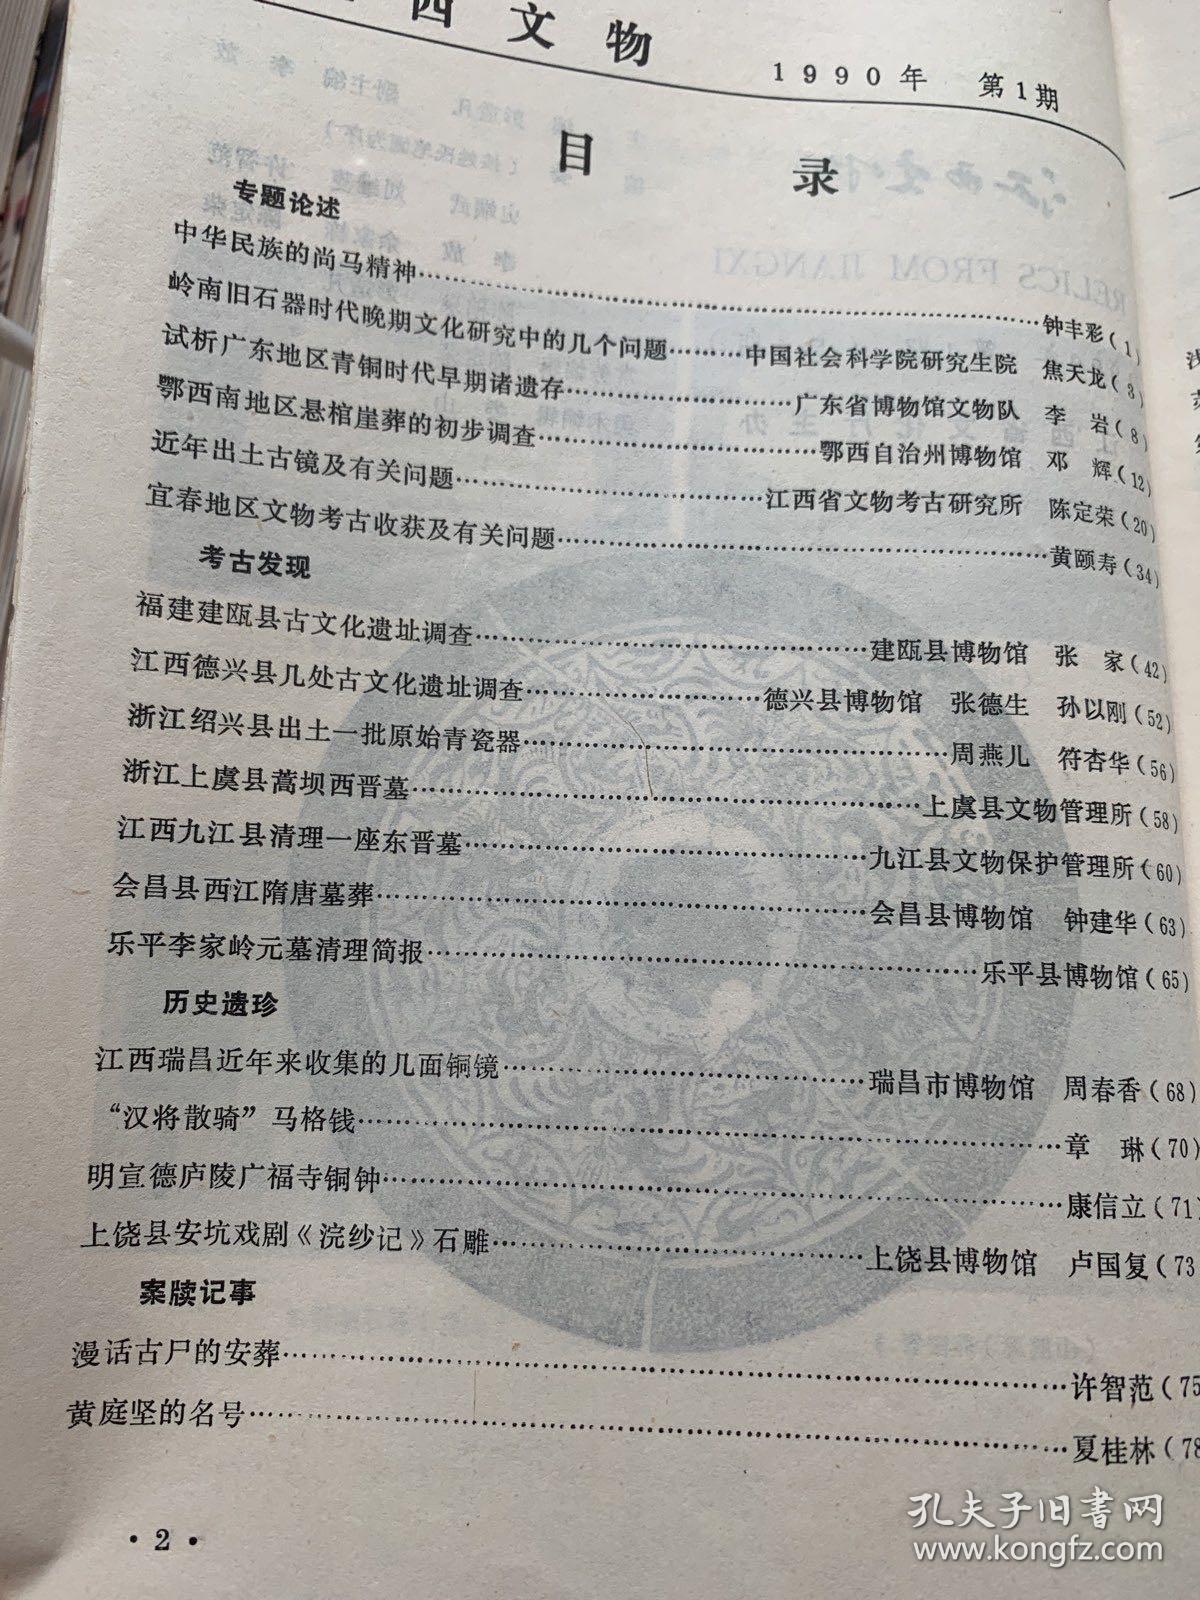 西文物
1990年 第1期
目 录
专题论述
中华民族的尚马精神……钟丰彩(1)
岭南旧石器时代晚期文化研究中的几个问题……中国社会科学院研究生院 焦天龙(3)
试析广东地区青铜时代早期诸遗存……广东省博物馆文物队 李 岩(8)
鄂西南地区悬棺崖葬的初步调查……鄂西自治州博物馆 邓 辉(12)
近年出土古镜及有关问题……江西省文物考古研究所 陈定荣(20)
宜春地区文物考古收获及有关问题……黄颐寿(34)
考古发现
福建建瓯县古文化遗址调查……建瓯县博物馆 张 家(42)
江西德兴县几处古文化遗址调查……德兴县博物馆 张德生 孙以刚(52)
浙江绍兴县出土一批原始青瓷器……周燕儿 符杏华(56)
浙江上虞县蒿坝西晋墓……上虞县文物管理所(58)
江西九江县清理一座东晋墓……九江县文物保护管理所(60)
会昌县西江隋唐墓葬……会昌县博物馆 钟建华(63)
乐平李家岭元墓清理简报……乐平县博物馆(65)
历史遗珍
江西瑞昌近年来收集的几面铜镜……瑞昌市博物馆 周春香(68)
“汉将散骑”马格钱……章 琳(70)
明宣德庐陵广福寺铜钟……康信立(71)
上饶县安坑戏剧《浣纱记》石雕……上饶县博物馆 卢国复(73
案牍记事
漫话古尸的安葬……许智范(75
黄庭坚的名号……夏桂林(78
·2·
孔夫子旧书网
www.kongfz.com